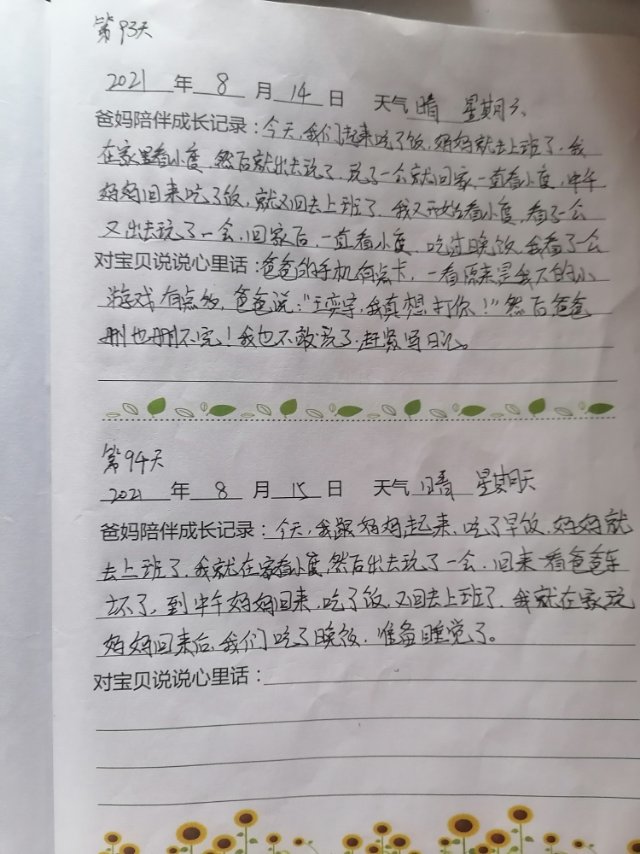 第93天
2021 年 8 月 14 日 天气 晴 星期六
爸妈陪伴成长记录：今天，我们起来吃了饭，妈妈就去上班了，我
在家里看小度，然后就出去玩了，玩了一会就回家一直看小度，中午
妈妈回来吃了饭，就又回去上班了，我又开始看小度，看了一会
又出去玩了一会，回家后，一直看小度，吃过晚饭，我看了会
对宝贝说说心里话：爸爸的手机有点卡，一看原来是我下的小
游戏有点多，爸爸说："王奕，我真想打你！"然后爸爸
删也删不完！我也不敢玩了，赶紧写日记。
第94天
2021 年 8 月 15 日 天气 晴 星期天
爸妈陪伴成长记录：今天，我跟妈妈起来，吃了早饭，妈妈就
去上班了，我就在家看小度，然后出去玩了一会，回来一看爸爸车
坏了，到中午妈妈回来，吃了饭，又回去上班了，我就在家玩
妈妈回来后，我们吃了晚饭，准备睡觉了。
对宝贝说说心里话：